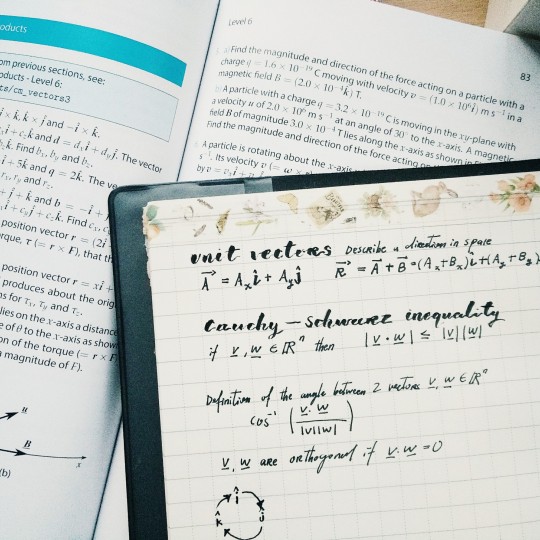 oducts
om previous sections, see:
oducts - Level 6:
ts/cm_vectors3
i × k, k × j and −i × k.
i + c₂k and d = d₁i + dᵧj. The vector
k. Find bₓ, bᵧ and b₂.
i + 5k and q = 2k. The ve
rₓ, rᵧ and r₂.
j + k and b = −i +
Find cₓ, c
position vector r = (2i
rque, τ (= r × F), that th
position vector r = xi +
produces about the orig
ns for τₓ, τᵧ and τ₂.
lies on the x-axis a distance
e of θ to the x-axis as show
on of the torque (= r × F
a magnitude of F).
u
B
x
(b)
Level 6
83
a) Find the magnitude and direction of the force acting on a particle with a
charge q = 1.6 × 10⁻¹⁹ C moving with velocity v = (1.0 × 10⁶i) m s⁻¹ in a
magnetic field B = (2.0 × 10⁻⁴k) T.
A particle with a charge q = 3.2 × 10⁻¹⁹ C is moving in the xy-plane with
a velocity u of 2.0 × 10⁶ m s⁻¹ at an angle of 30° to the x-axis. A magnetic
field B of magnitude 3.0 × 10⁻⁴ T lies along the x-axis as shown in
Find the magnitude and direction of the force acting on
A particle is rotating about the x-axis
Its velocity v (= w ×
by v = vᵧj +
unit vectors Describe a direction in space
A⃗ = Aₓî + Aᵧĵ R⃗ = A⃗ + B⃗ = (Aₓ+Bₓ)î + (Aᵧ+Bᵧ)
Cauchy - schwarz inequality
if v, w ∈ ℝⁿ then |v · w| ≤ |v||w|
Definition of the angle between 2 vectors v, w ∈ ℝⁿ
cos⁻¹ (v · w / |v||w|)
v, w are orthogonal if v · w = 0
î
k̂ ĵ